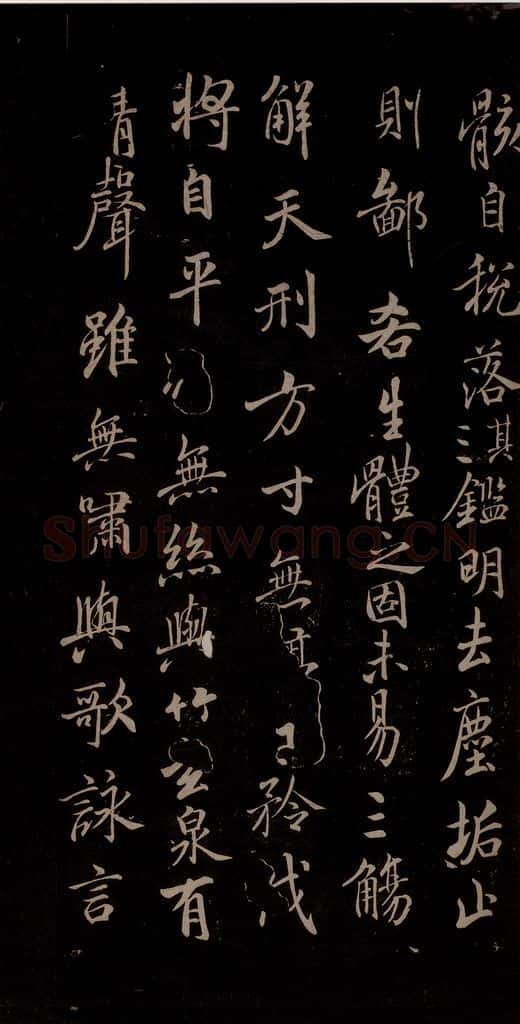 骸自稅落其三鑑明去塵垢止
則鄙吝生體之固未易三觴
解天刑方寸無矜伐
將自平無絲與竹玄泉有
青聲雖無嘯與歌詠言
Shufawang.CN